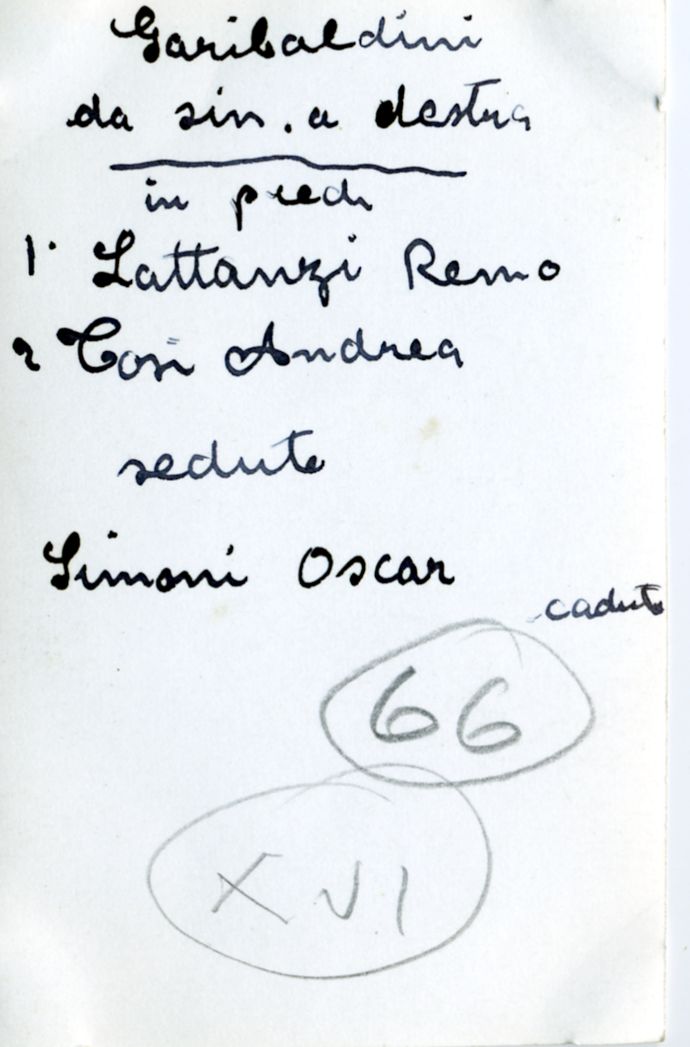 Garibaldini
da sin. a destra
in piedi
1° Lattanzi Remo
2 Cosi Andrea
seduto
Simoni Oscar
caduto
66
XVI